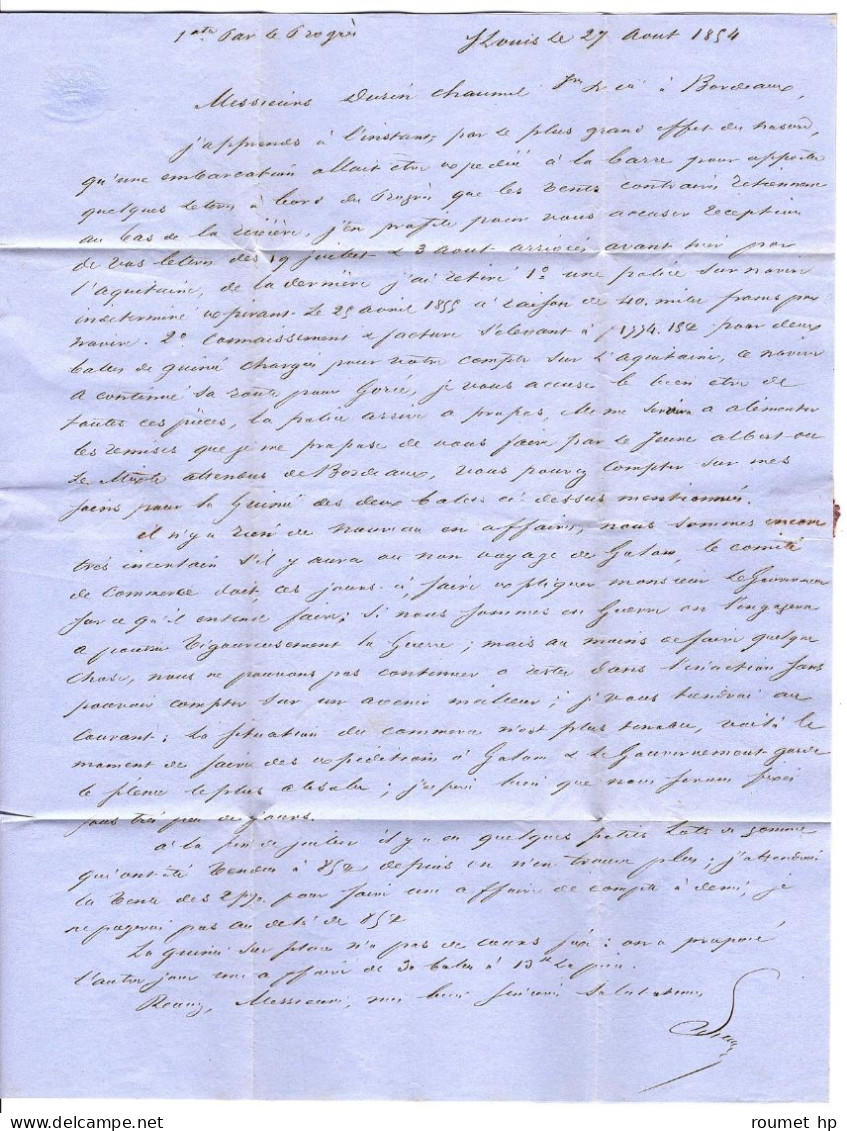 1ata Par le Progrès St Louis le 27 Aout 1854
Messieurs Durin Chaumel Jne & cie à Bordeaux,
j'apprends à l'instant, par le plus grand effet du hasard,
qu'une embarcation allait être expédiée à la barre pour apporter
quelques lettres à bord du Progrès que les vents contraires retiennent
au bas de la rivière, j'en profite pour vous accuser réception
de vos lettres des 19 juillet & 3 Aout arrivées avant hier par
l'aquitaine, de la dernière j'ai retiré 1o une police sur navire
indéterminé expirant le 25 avril 1855 à raison de 40. mille francs par
navire. 2o Connaissement & facture s'élevant à f 1774.15c pour deux
balles de guinée chargées pour votre compte sur L'aquitaine, ce navire
a continué sa route pour Gorée, je vous accuse le bien être de
toutes ces pièces, la police arrive à propos, elle me servira à alimenter
les remises que je me propose de vous faire par le Jeune albert ou
le attendus de Bordeaux, vous pouvez compter sur mes
soins pour la Guinée des deux balles ci dessus mentionnées.
il n'y a rien de nouveau en affaires, nous sommes encore
très incertain s'il y aura ou non voyage de Galam, le comité
de commerce doit, ces jours ci, faire expliquer monsieur Le Gouverneur
sur ce qu'il entend faire; si nous sommes en Guerre on l'engagera
à pousser vigoureusement la Guerre; mais au moins de faire quelque
chose, nous ne pouvons pas continuer à rester dans l'inaction sans
pouvoir compter sur un avenir meilleur; je vous tiendrai au
courant; la situation du commerce n'est plus tenable, voilà le
moment de faire des expéditions à Galam & le Gouvernement garde
le silence le plus absolu; j'espère bien que nous serons fixés
sous très peu de jours.
à la fin de juillet il y a eu quelques petits lots de gomme
qui ont été vendus à 85c depuis on n'en trouve plus; j'attendrai
la vente des pour faire une affaire de compte à demi, je
ne payerai pas au delà de 85c
La guinée sur place n'a pas de cours fixe: on a proposé
l'autre jour une affaire de 30 balles à 13 la pièce.
Recevez, Messieurs, mes bien sincères salutations
roumet hp